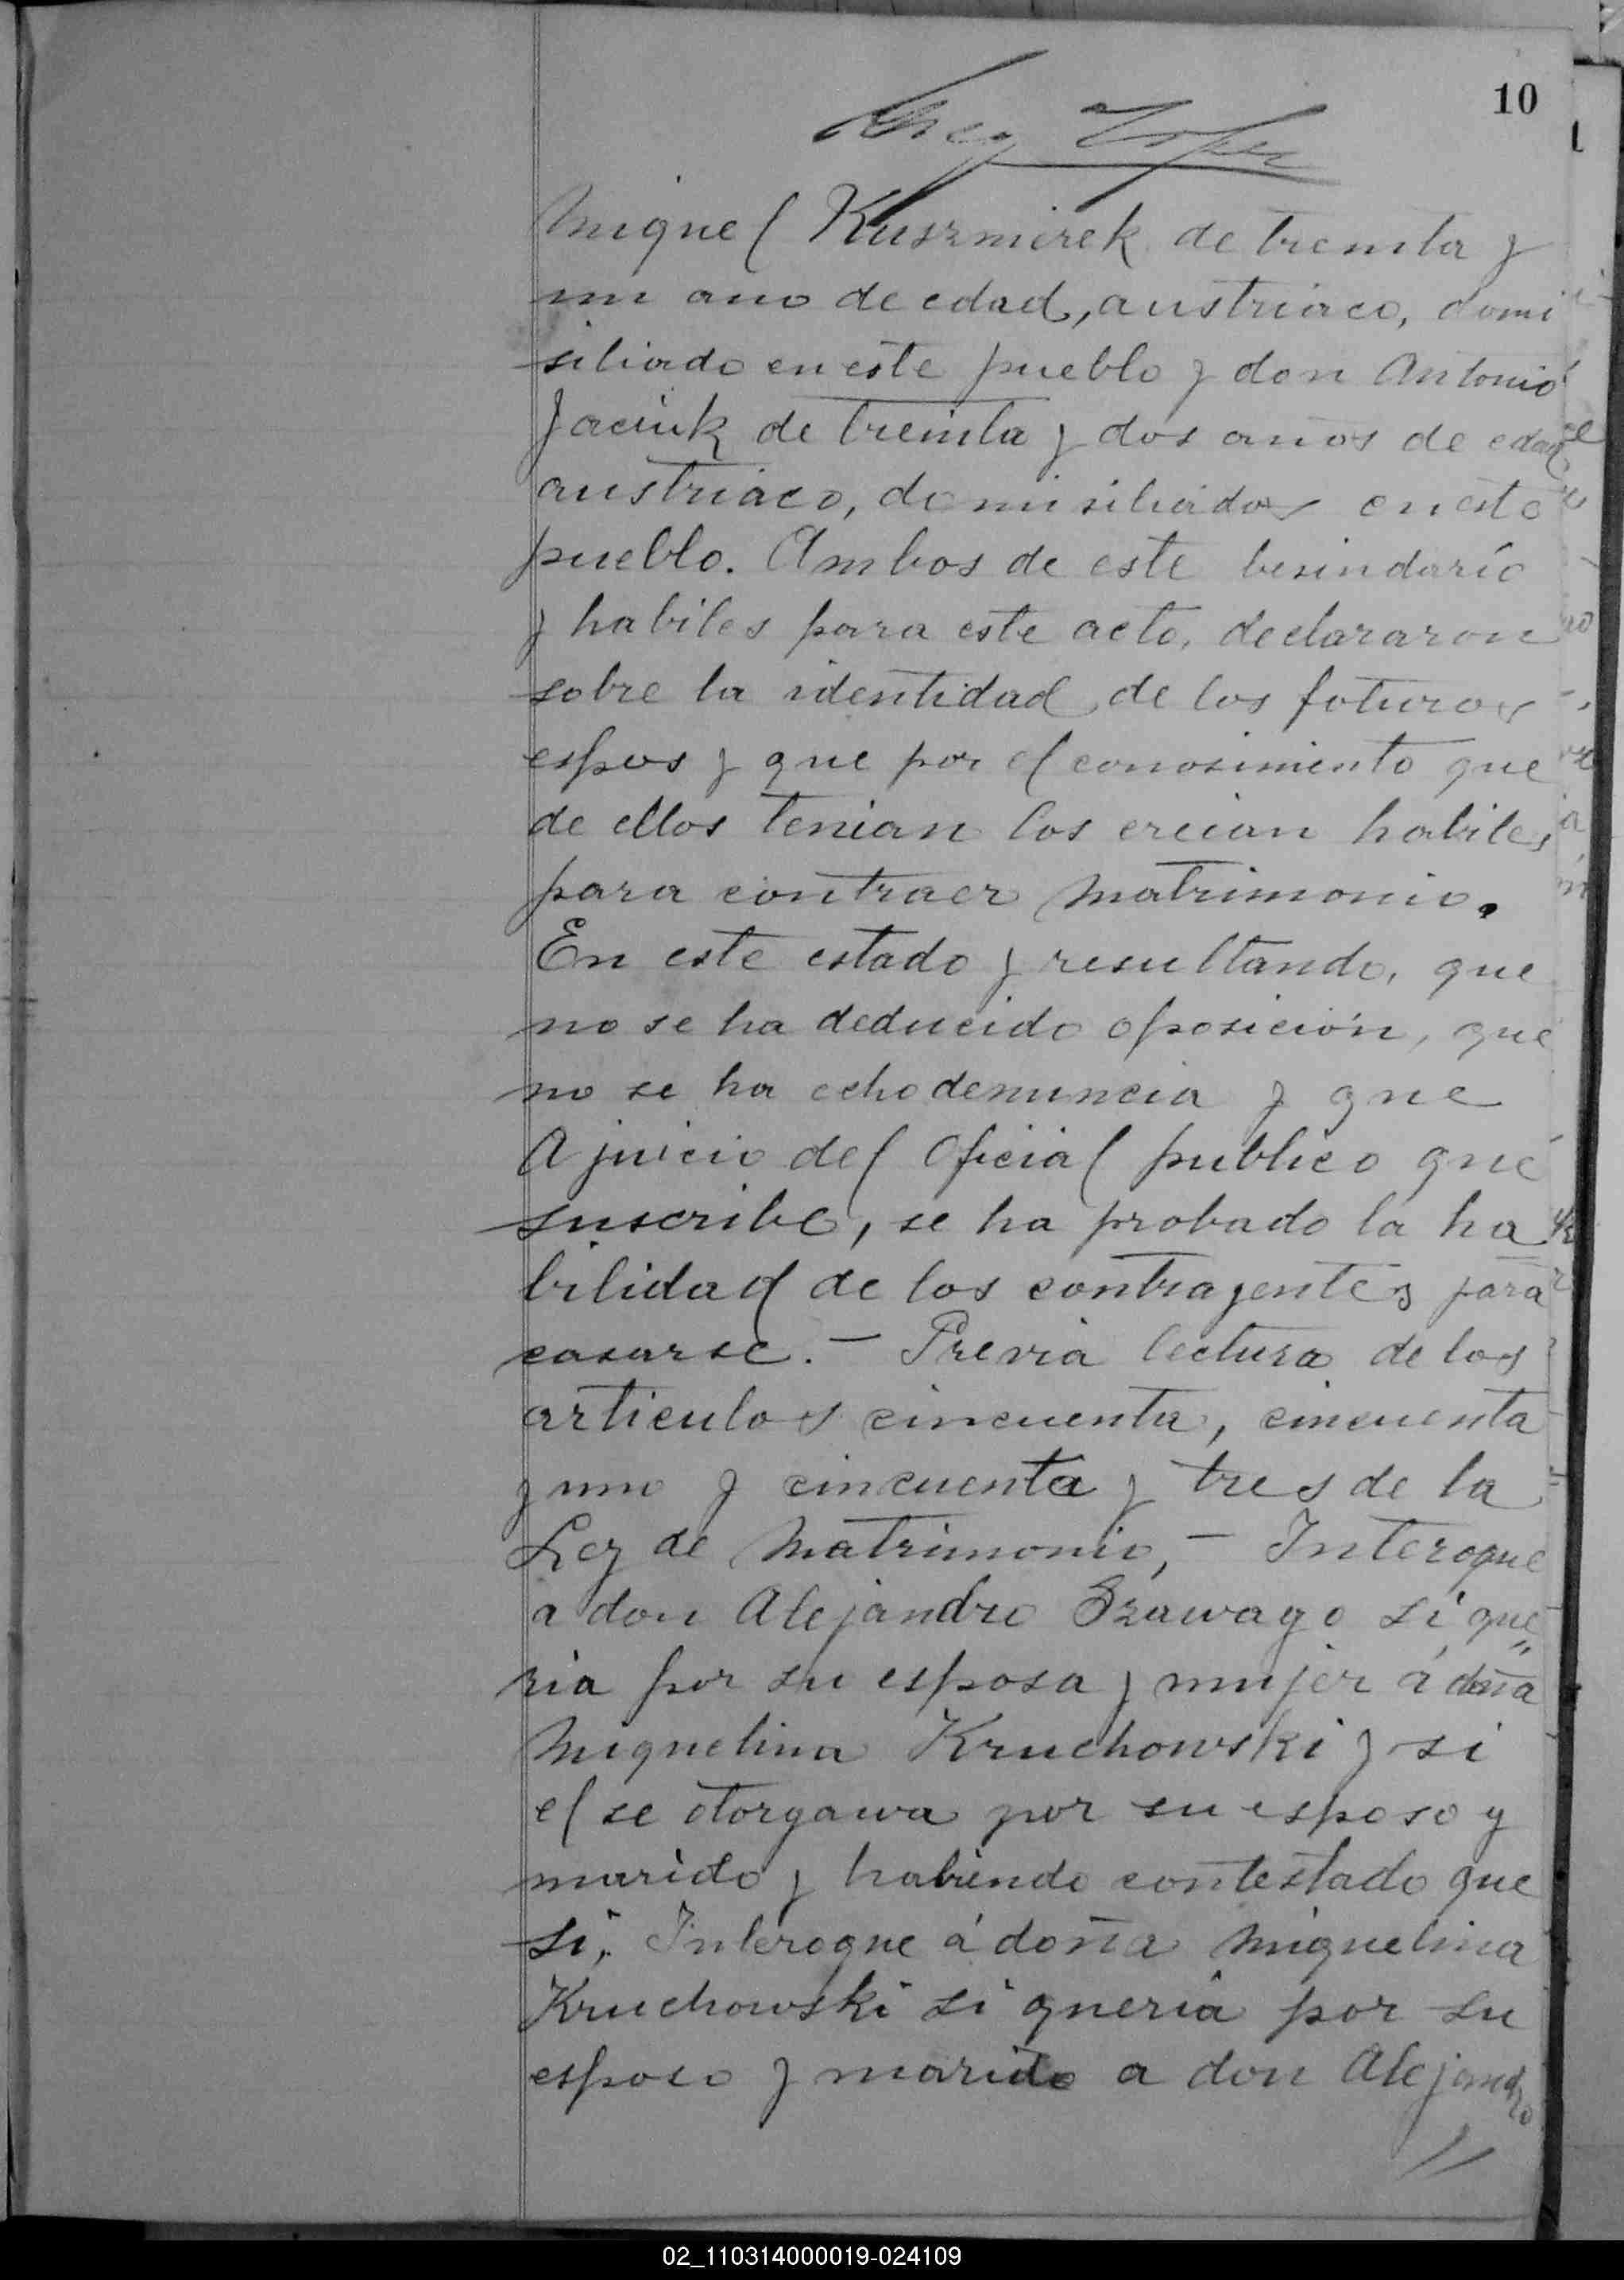 10
Miguel Kuszmirek de treinta y
un ano de edad, austriaco, domi
siliado en este pueblo y don Antonio
Jaciuk de treinta y dos años de edad
austriaco, domisiliados en este
pueblo. Ambos de este besindario
y habiles para este acto, declararon
sobre la identidad de los futuros
espos y que por el conosimiento que
de ellos tenian los creian habiles
para contraer matrimonio.
En este estado y resultando, que
no se ha deducido oposición, que
no se ha echo denuncia y que
a juicio del Oficial publico que
suscribe, se ha probado la ha
bilidad de los contrayentes para
casarse. – Previa lectura de los
articulos cincuenta, cincuenta
y uno y cincuenta y tres de la
Ley de Matrimonio, – Interogue
a don Alejandro Szawago si que
ria por su esposa y mujer á doña
Miguelina Kruchowski y si
el se otorgawa por su esposo y
marido y habiendo contestado que
si, Interogue á doña Miguelina
Kruchowski si queria por su
esposo y marido a don Alejandro
02_110314000019-024109